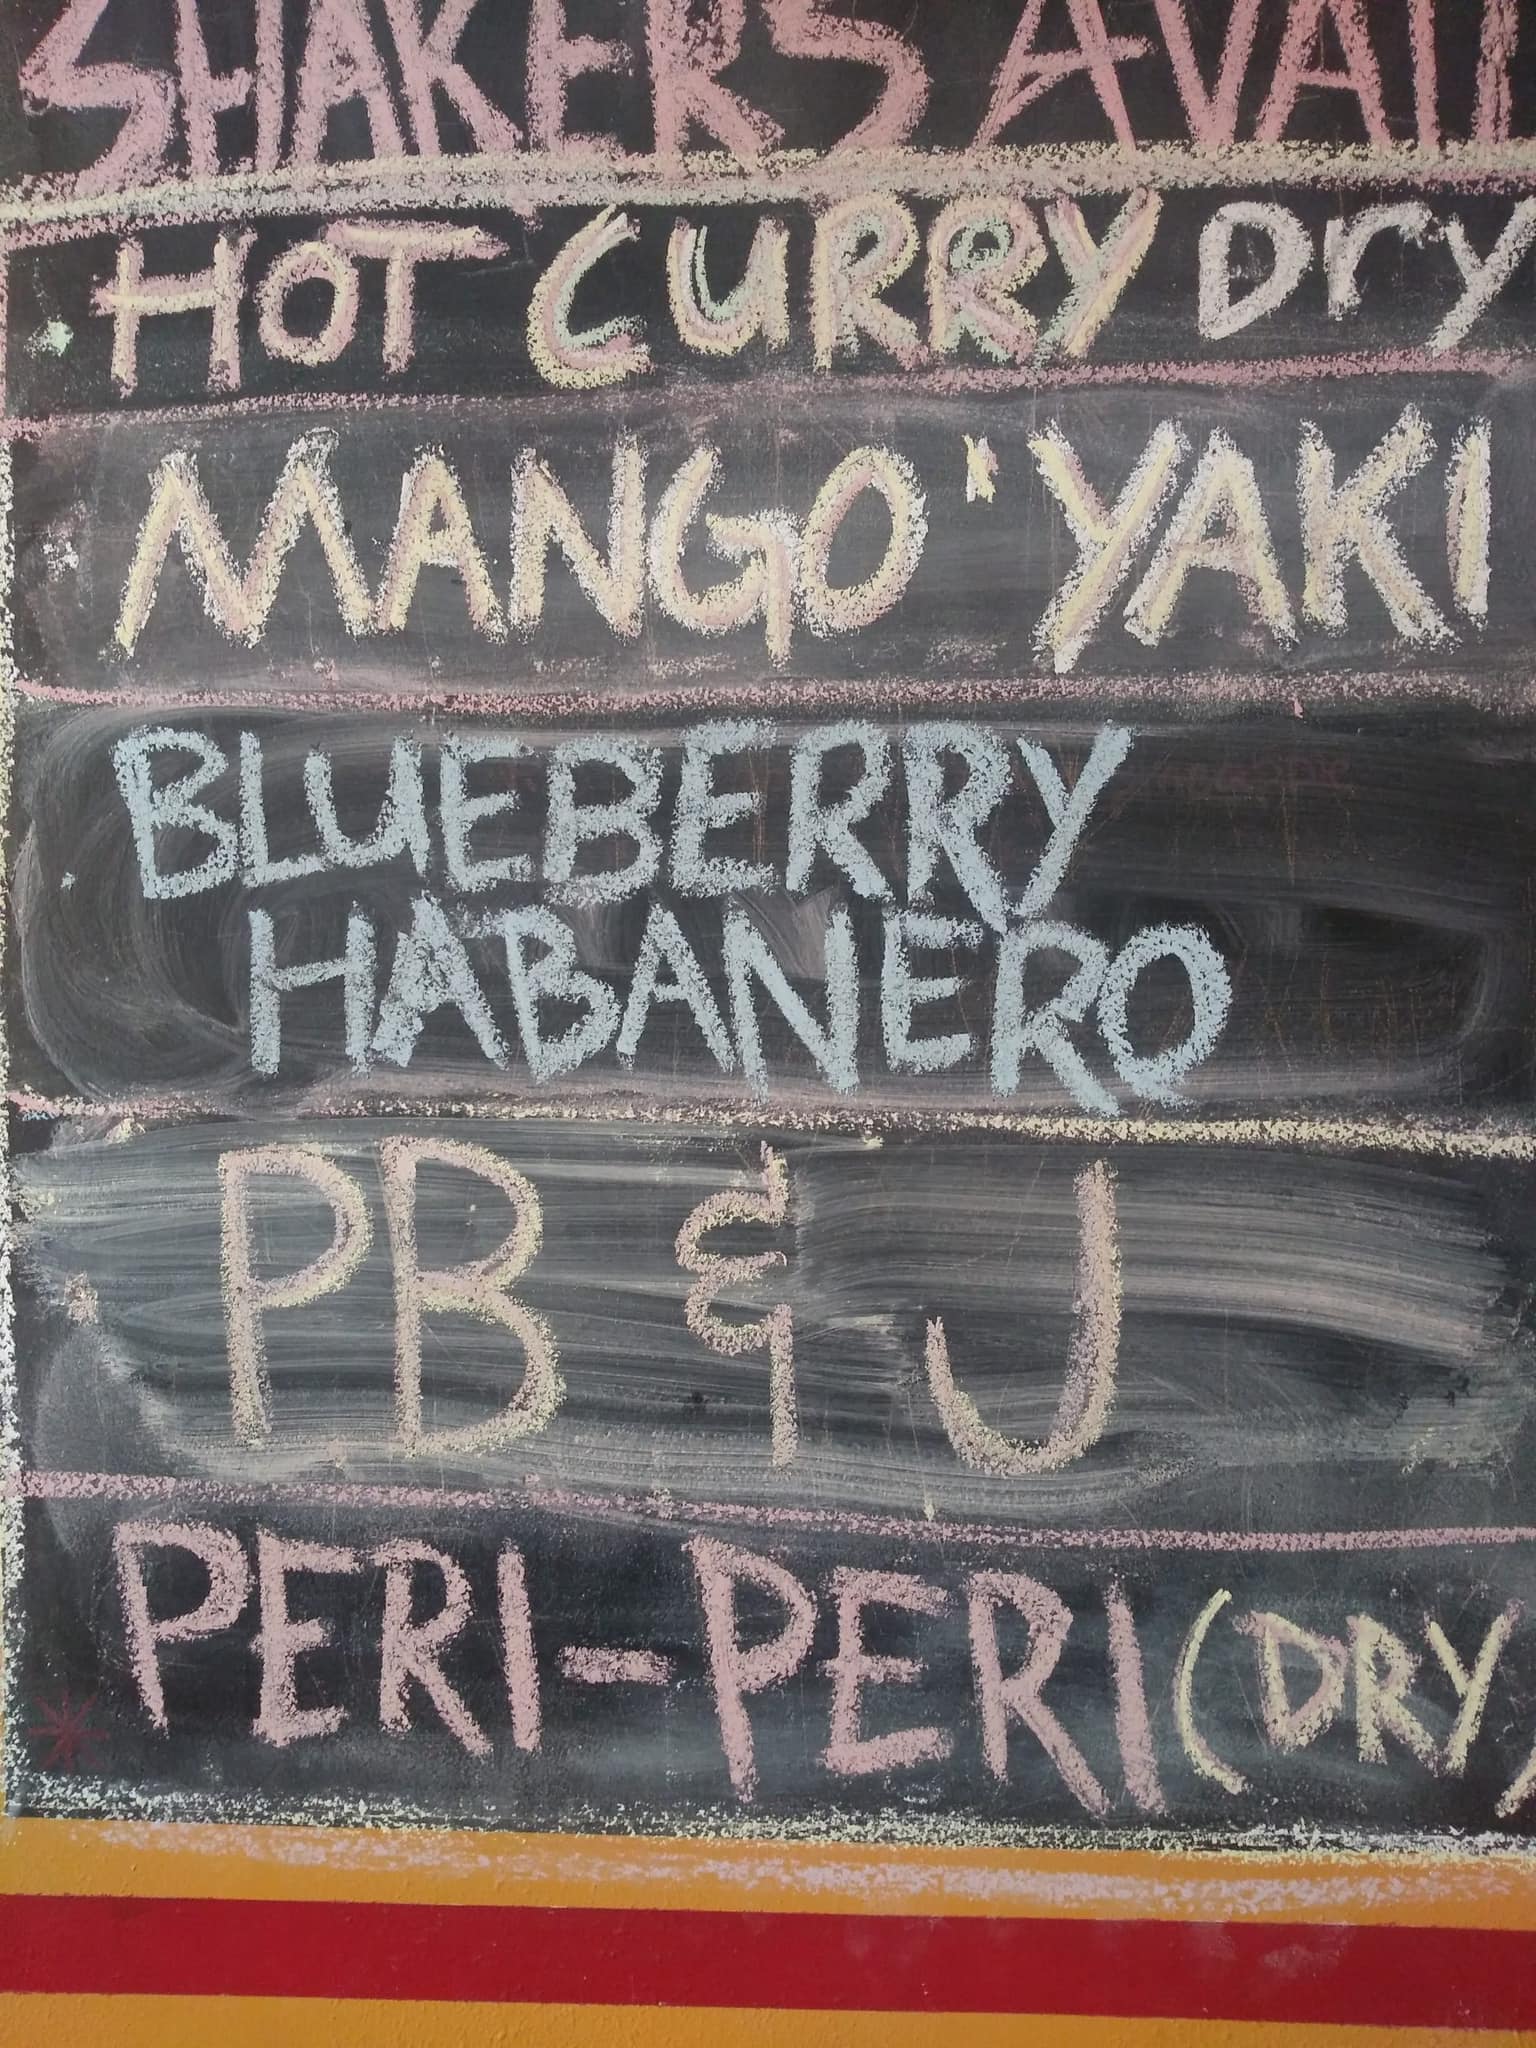 SHAKERS AVAI
HOT CURRY Dry
MANGO 'YAKI
BLUEBERRY
HABANERO
PB & J
PERI-PERI (DRY)